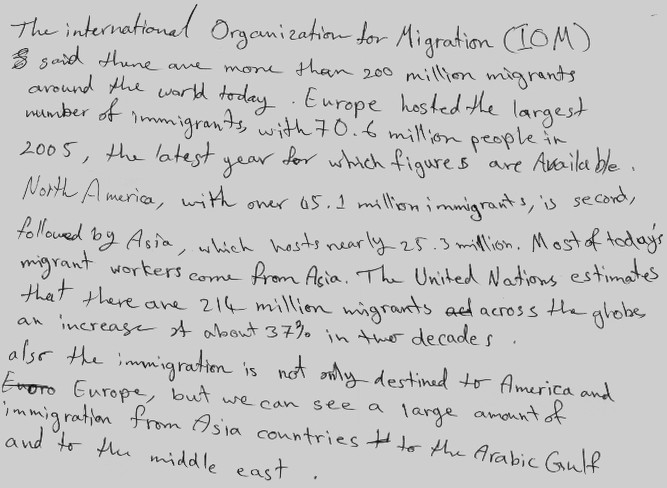 The international Organization for Migration (IOM)
said there are more than 200 million migrants
around the world today. Europe hosted the largest
number of immigrants, with 70.6 million people in
2005, the latest year for which figures are Available.
North America, with over 45.1 million immigrants, is second,
followed by Asia, which hosts nearly 25.3 million. Most of today's
migrant workers come from Asia. The United Nations estimates
that there are 214 million migrants across the globe
an increase of about 37% in two decades.
also the immigration is not only destined to America and
Europe, but we can see a large amount of
immigration from Asia countries to the Arabic Gulf
and to the middle east.